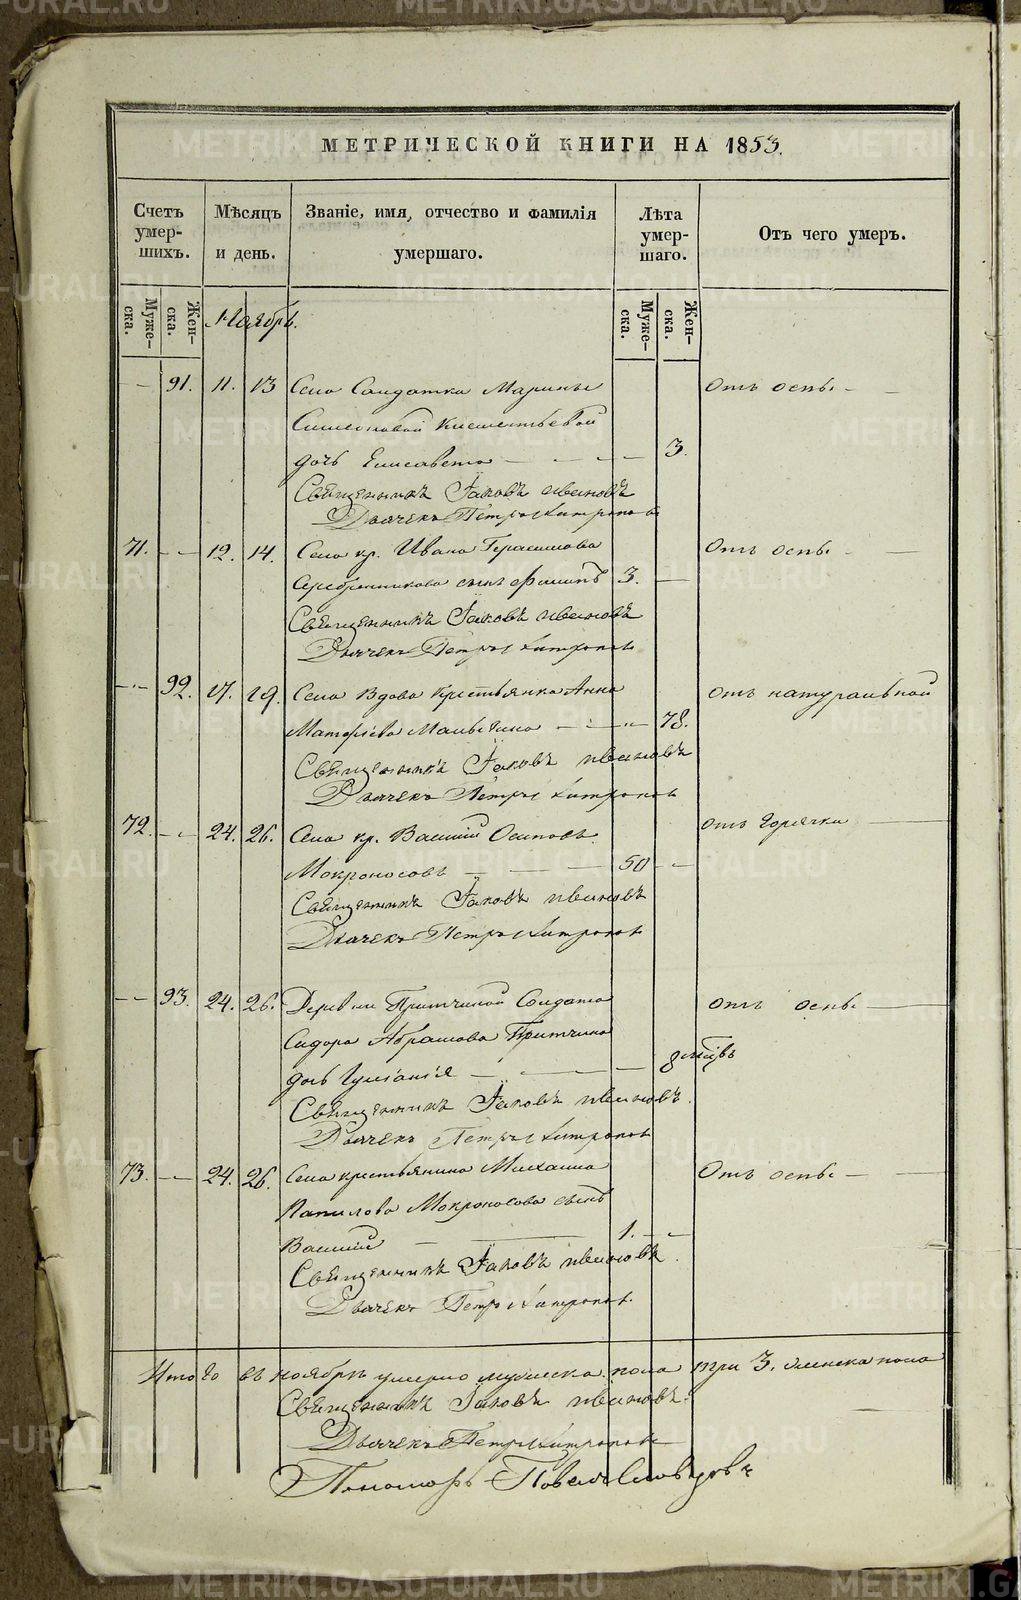 МЕТРИЧЕСКОЙ КНИГИ НА 1853.
Счетъ умер-шихъ.
Мѣсяцъ и день.
Званіе, имя, отчество и фамилія умершаго.
Лѣта умер-шаго.
Отъ чего умеръ.
Муже-ска.
Жен-ска.
Ноябрь.
Муже-ска.
Жен-ска.
91. 11. 13 Села Солдатки Марины Отъ оспы
Симеоновой
дочь Елисавета 3.
Священникъ Іаковъ Ивановъ
Дьячекъ Петръ Хитровов
71. 12. 14. Села кр. Ивана Герасимова Отъ оспы
Серебренникова сынъ Филипъ 3.
Священникъ Іаковъ Ивановъ
Дьячекъ Петръ
92. 17. 19. Села вдова крестьянка Анна Отъ натуральной
Матфіева 78.
Священникъ Іаковъ Ивановъ
Дьячекъ Петръ
72. 24. 26. Села кр. Василій Осиповъ Отъ горячки
Мокроносовъ 50
Священникъ Іаковъ Ивановъ
Дьячекъ Петръ
93. 24. 26. Деревни Притчиной Солдата Отъ оспы
Сидора Абрамова Притчина
дочь Іуліанія 8 мѣсяцовъ
Священникъ Іаковъ Ивановъ.
Дьячекъ Петръ
73. 24. 26. Села крестьянина Михаила Отъ оспы
Мокроносова сынъ
Василій 1.
Священникъ Іаковъ Ивановъ.
Дьячекъ Петръ
Итого въ ноябрѣ умерло мужеска пола три 3. женска пола
Священникъ Іаковъ Ивановъ.
Дьячекъ Петръ
Пономарь Павелъ
METRIKI.GASO-URAL.RU